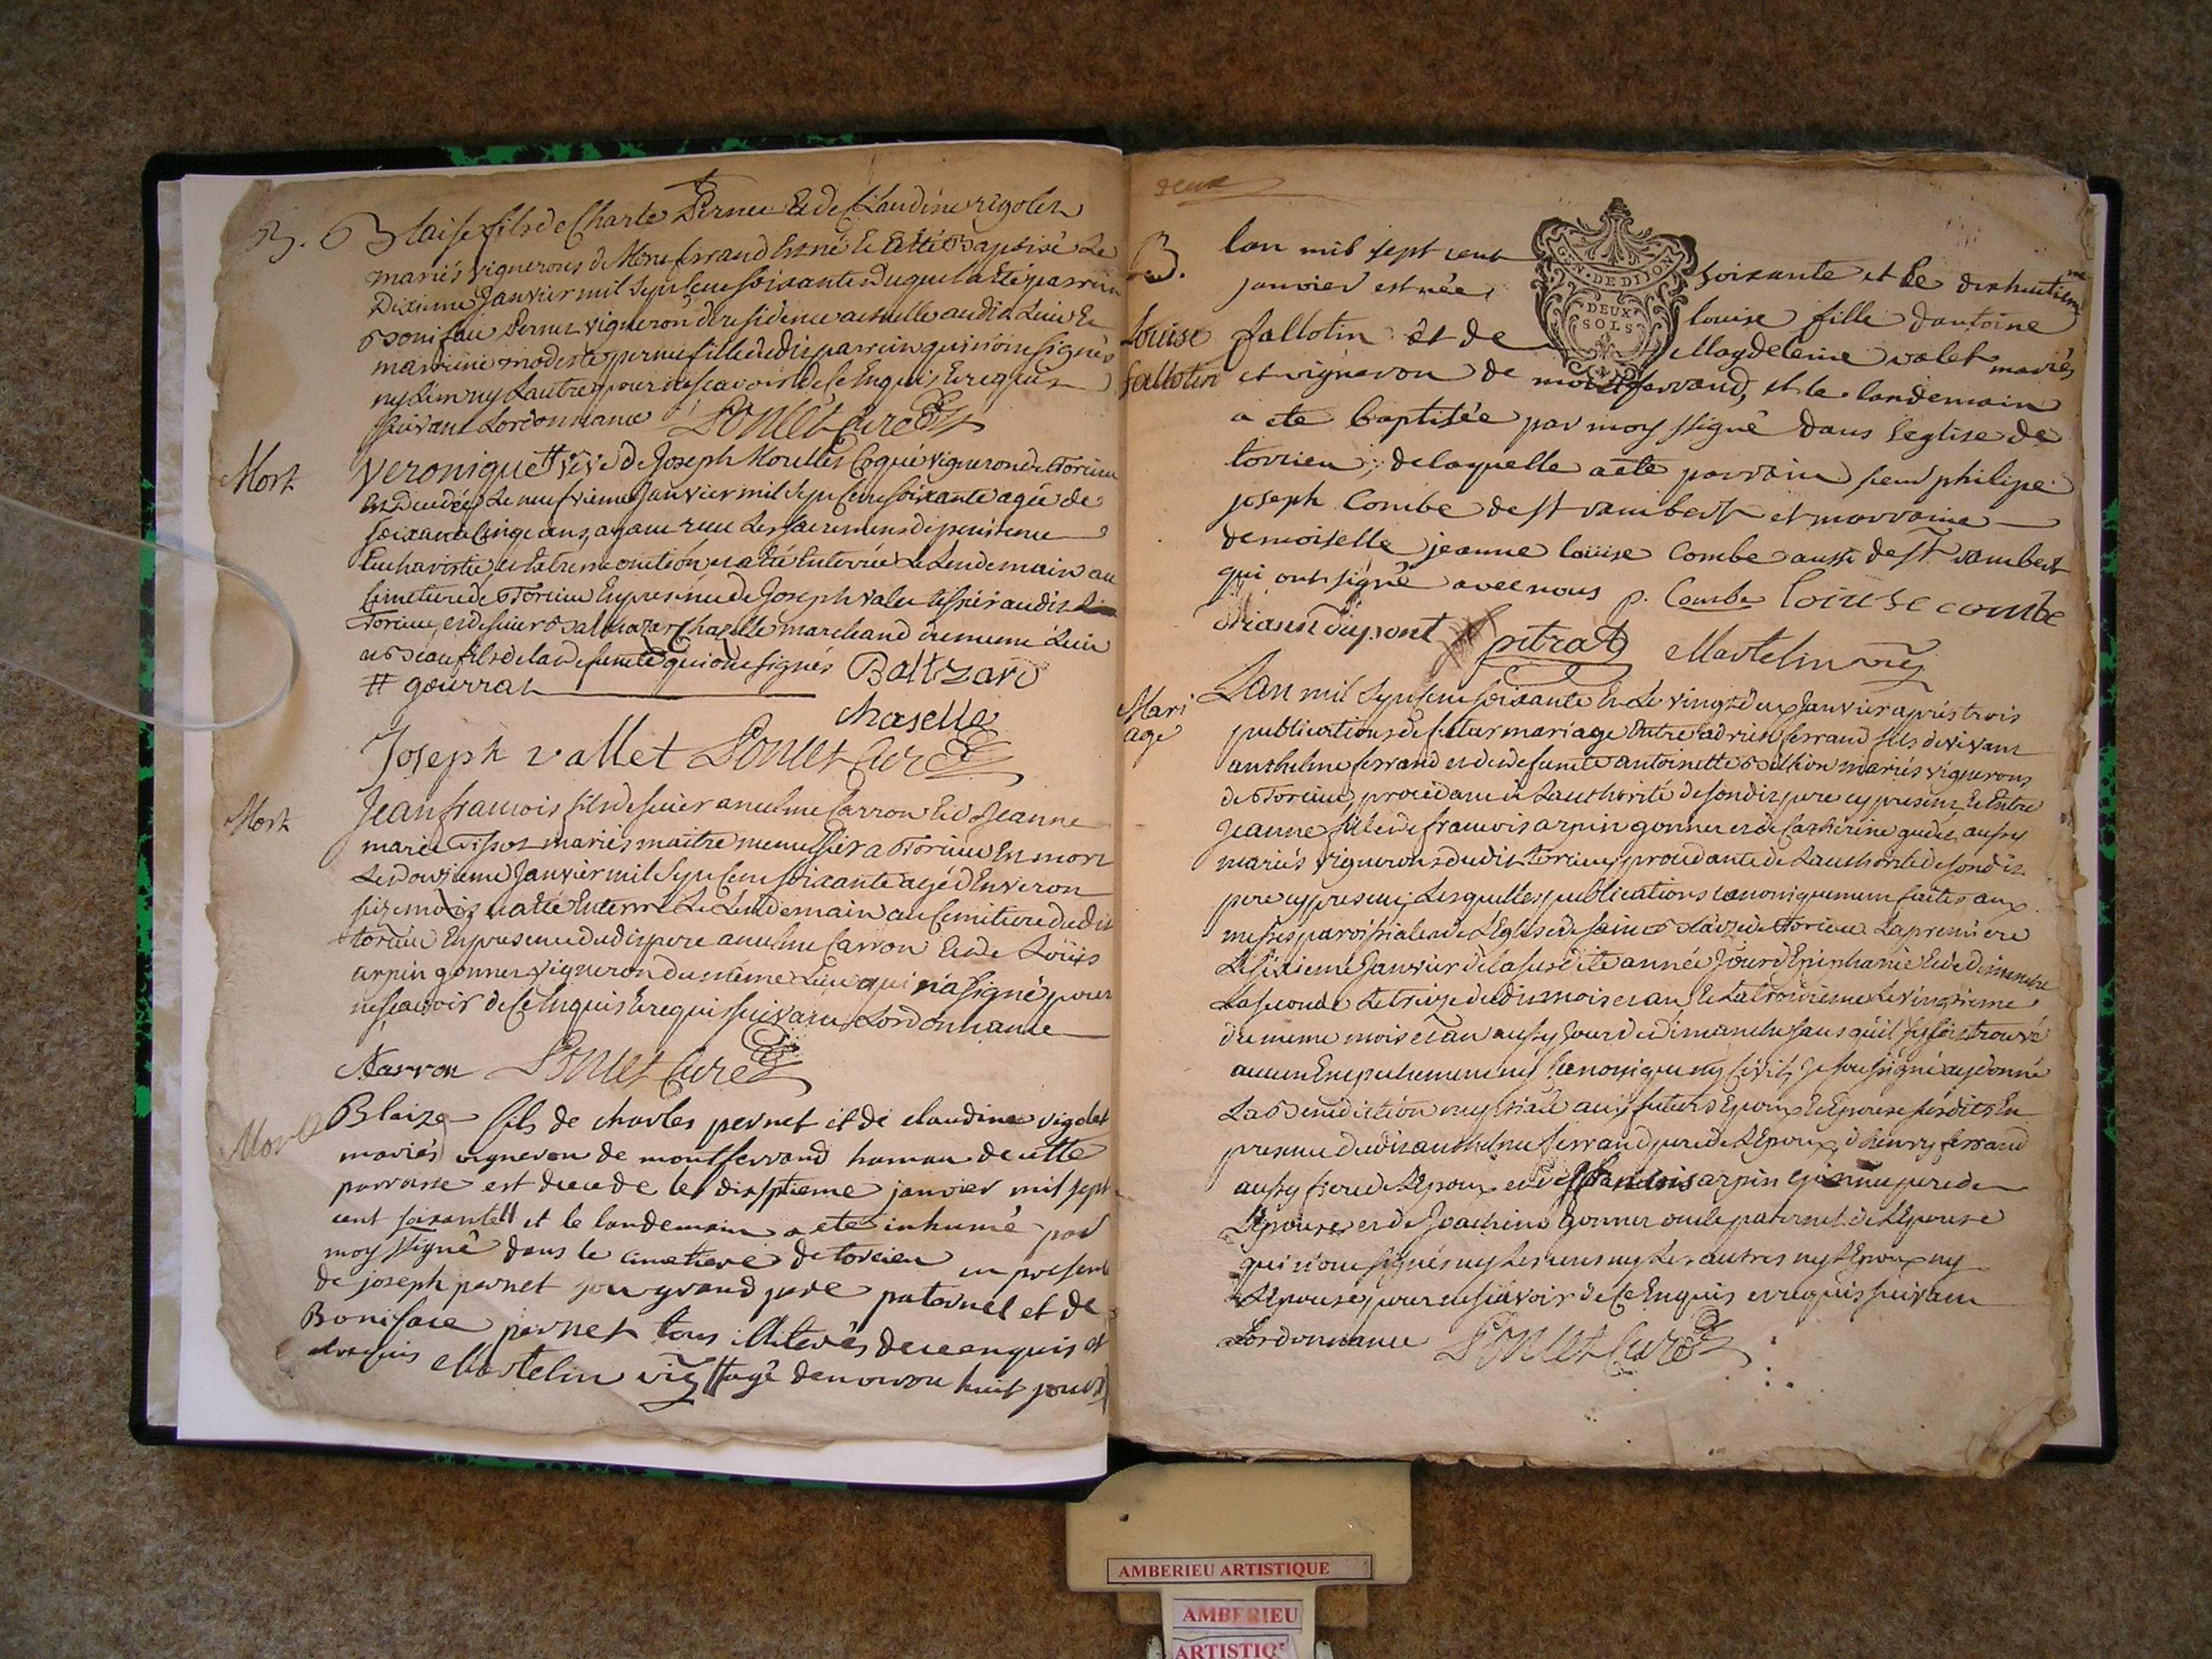 B. Blaise fils de Charle Pernet et de Claudine rigolet
mariés vignerons de Monferrand est né et a été Baptisé Le
Dixieme Janvier mil sept cent soixante duquel a été parrain
Boniface Pernet vigneron de residence actuelle audit Lieu et
marrine modeste pernet fille dudit parrain qui n'ont signés
ny L'un ny L'autre pour ne scavoir de ce Enquis Et requis
suivant Lordonnance Ponset Curé
Mort
veronique # vêve de Joseph vigneron de Torcieu
est Decedée Le neufvieme Janvier mil sept cent soixante agée de
soixante Cinq ans, ayant reçu Les sacremens de penitence
Eucharistie, et Extremeonction et a été Enterrée Le Lendemain au
Cimetiere de Torcieu En presence de Joseph valet audit Lieu
Torcieu, et de sieur Balthazar Chapelle marchand du meme Lieu
et Beaufils de la defunte qui ont signés Baltzard
# gourrat
chaselle
Joseph vallet Ponset Curé
Mort
Jean francois fils de sieur anselme Carron et de Jeanne
marie Tissot mariés maitre menuisier a Torcieu Est mort
Le Janvier mil sept cent soixante agé d'Environ
seize mois et a été Enterré Le Lendemain au Cimitiere dudit
torcieu En presence dudit pere anselme Carron Et de Loüis
arpin gonnet vigneron du même Lieu qui n'a signé pour
ne scavoir de ce Enquis Et requis suivant Lordonnance
Carron Ponset Curé
Mort
Blaize fils de charles pernet et de claudine rigolet
mariés vigneron de montferrand hamau de cette
parroisse est decede le dixseptieme janvier mil sept
cent soixante # et le landemain a ete inhumé par
moy ssigné dans le cimetiere de torcieu en presence
de joseph pernet son grand pere paternel et de
Boniface pernet tous illiterés de ce enquis et
requis Martelin vic # agé denviron huit jours
deux
B.
Louise
fallotin
lan mil sept cent soixante et le dixhuitieme
GEN. DE DIJON
DEUX
SOLS
janvier est née louise fille dantoine
fallotin et de Magdeleine valet mariés
et vigneron de montferrand, et le landemain
a ete baptisée par moy ssigné dans leglise de
torcieu, de laquelle a ete parrain sieur philipe
joseph Combe de st rambert et marraine
demoiselle jeanne loüise Combe aussi de st rambert
qui ont signé avec nous p. Combe loiuse combe
dupont pitrat Martelin vic
Mari
age
Lan mil sept cent soixante et Le vingt deux Janvier aprés trois
publications de futur mariage Entre adrien ferrand fils de vivant
anthelme ferrand et de defunte antoinette mariés vignerons
de Torcieu, procedant de Lauthorité de sondit pere cy present Et Entre
Jeanne fille de francois arpin gonnet et de Catherine aussy
mariés vignerons dudit torcieu, procedante de Lauthorité de sondit
pere cy present, Lesquelles publications canoniquement faites aux
messes paroissiales de L'Eglise de saint Blaize de Torcieu La premiere
Le sixieme Janvier de la susdite année Jour d'Epiphanie Et de dimanche
La seconde Le treize dudit mois et an, Et La troisieme Le vingtieme
du meme mois et an aussy Jour de dimanche sans qu'il s'y soit trouvé
aucun Empechement ny Canonique ny Civil, Je soussigné ay donné
La Benediction nuptiale aux futurs Epoux Et Epouse susdits En
presence dudit anthelme ferrand pere de L'Epoux, d'henry ferrand
aussy frere de L'Epoux et de francois arpin gonnet pere de
L'Epouse et de Joachim Gonnet oncle paternel de L'Epouse
qui n'ont signés ny Les uns ny Les autres ny L'Epoux ny
L'Epouse pour ne scavoir de ce Enquis et requis suivant
Lordonnance Ponset Curé
AMBERIEU ARTISTIQUE
AMBERIEU
ARTISTIQ